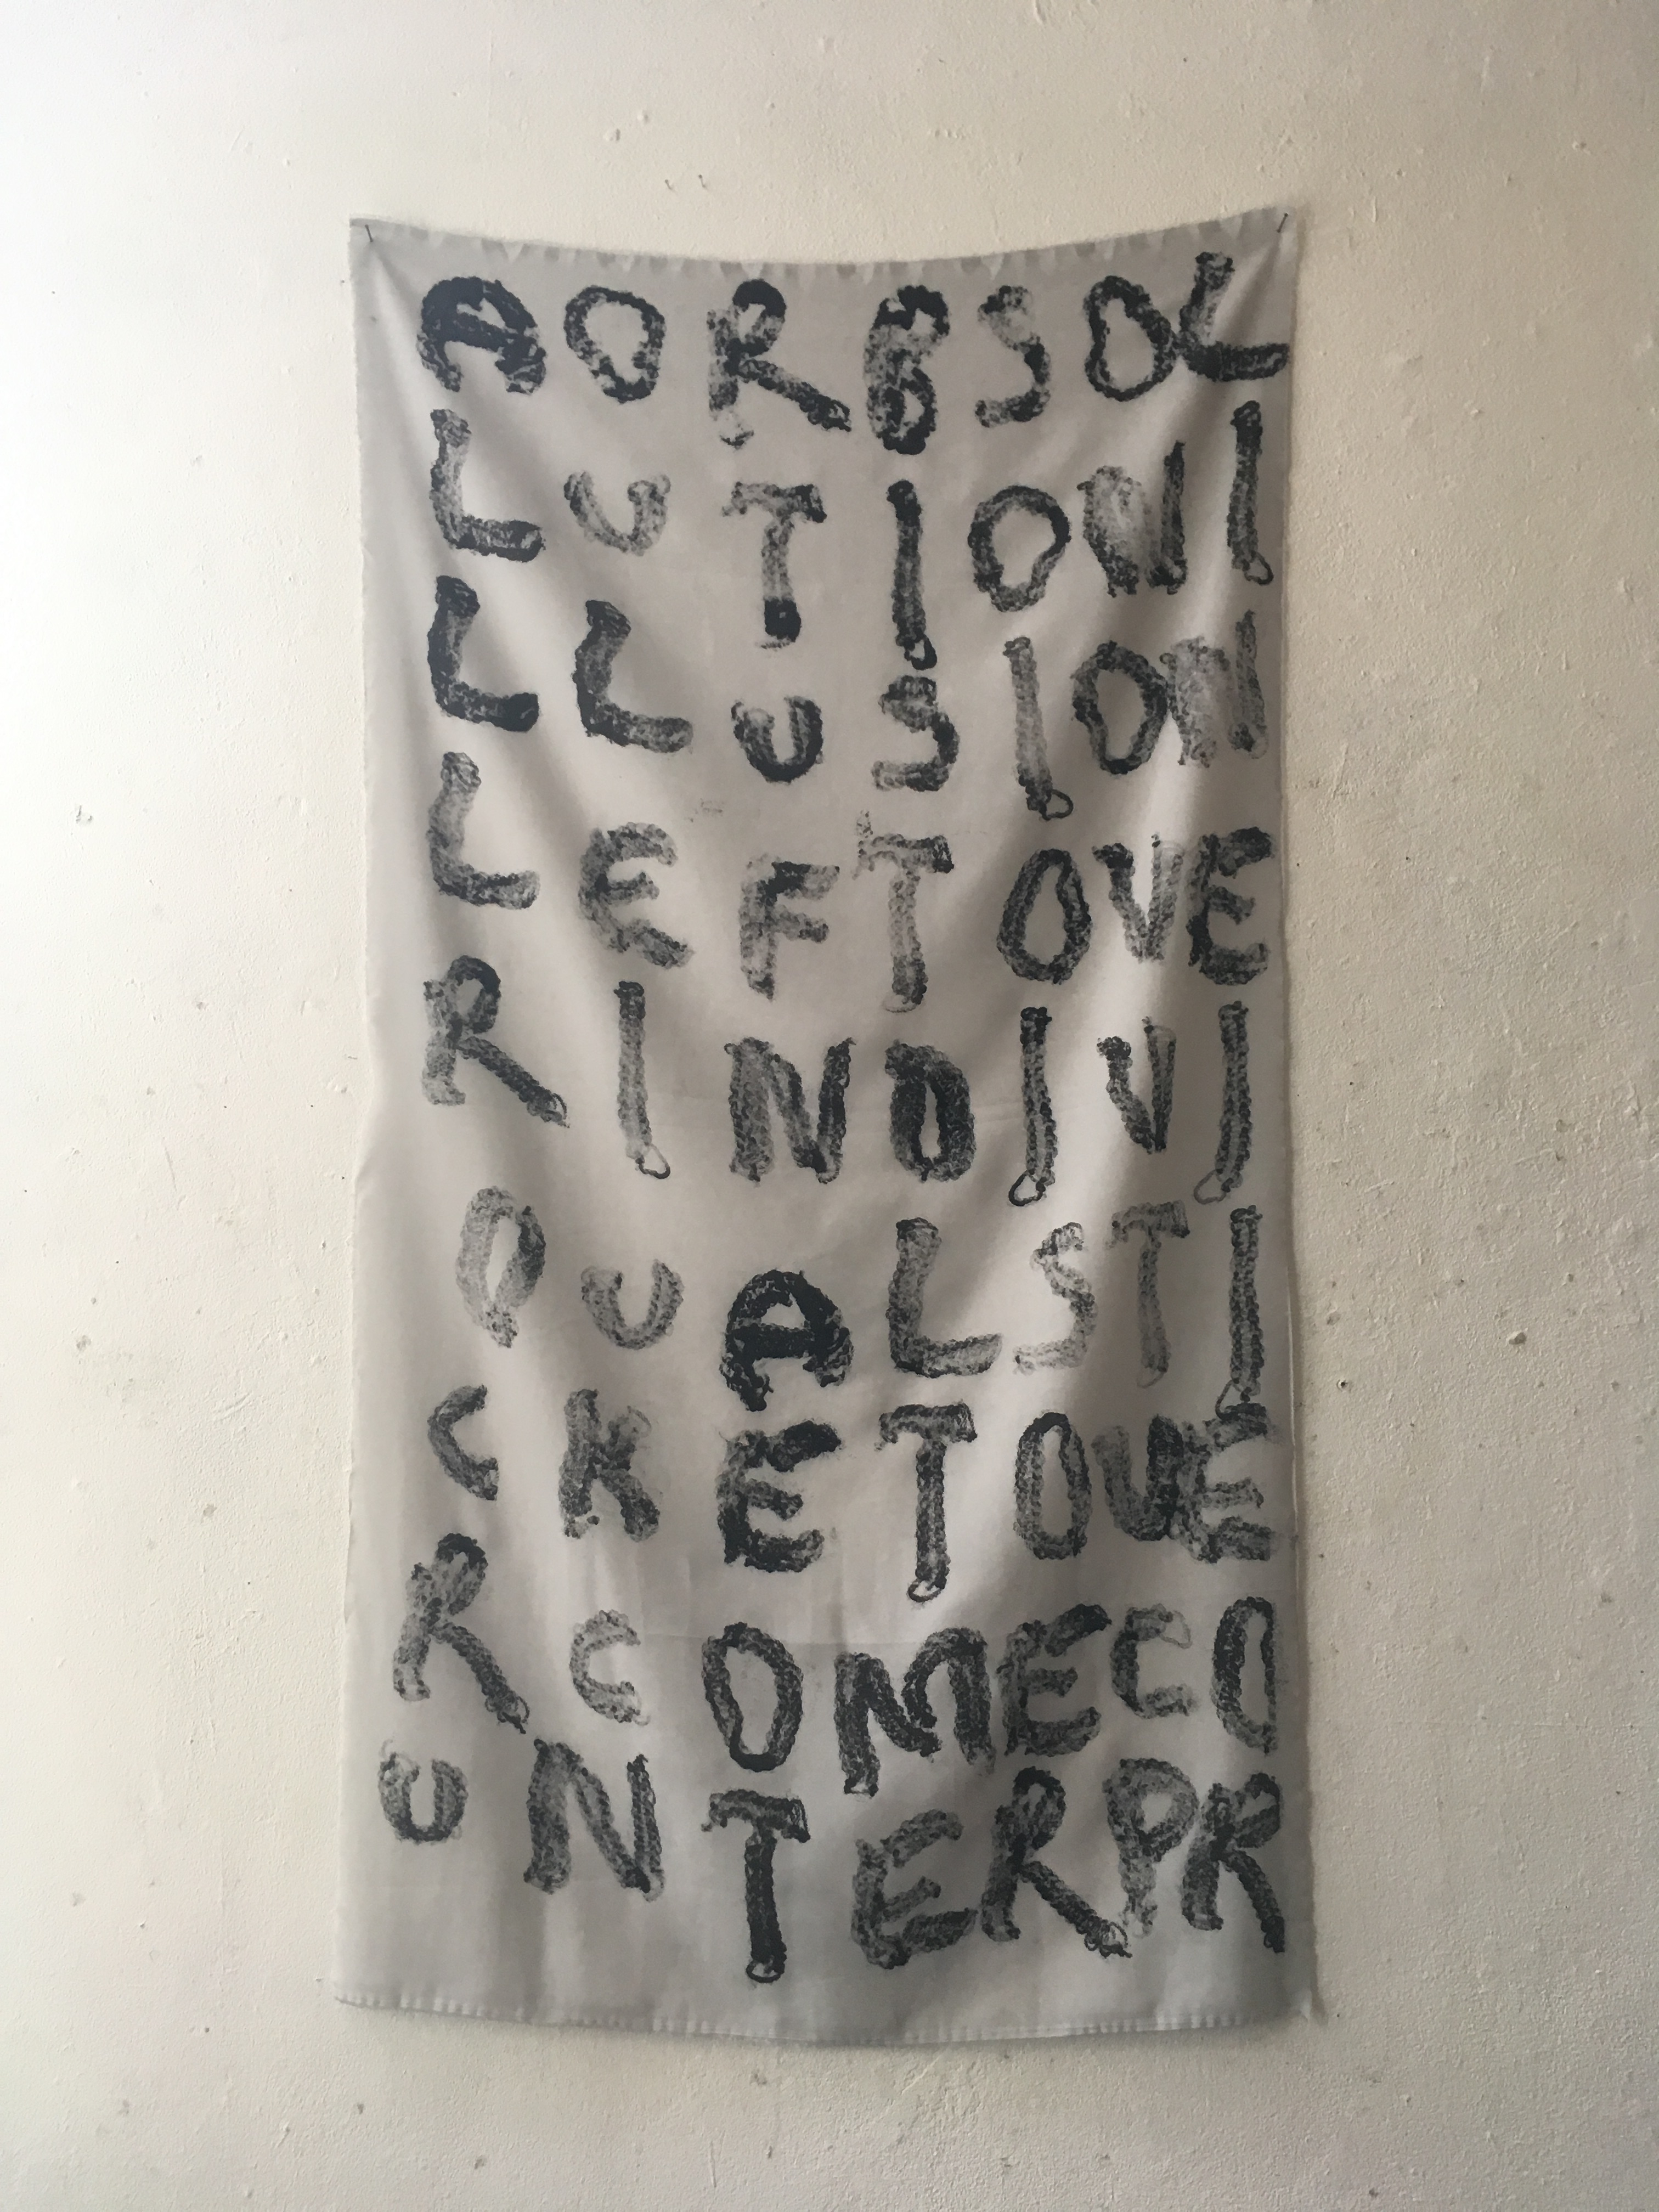 AORBSOL
LUTIONI
LLUSION
LEFTOVE
RINDIVI
DUALSTI
CKETOVE
RCOMECO
UNTERPR